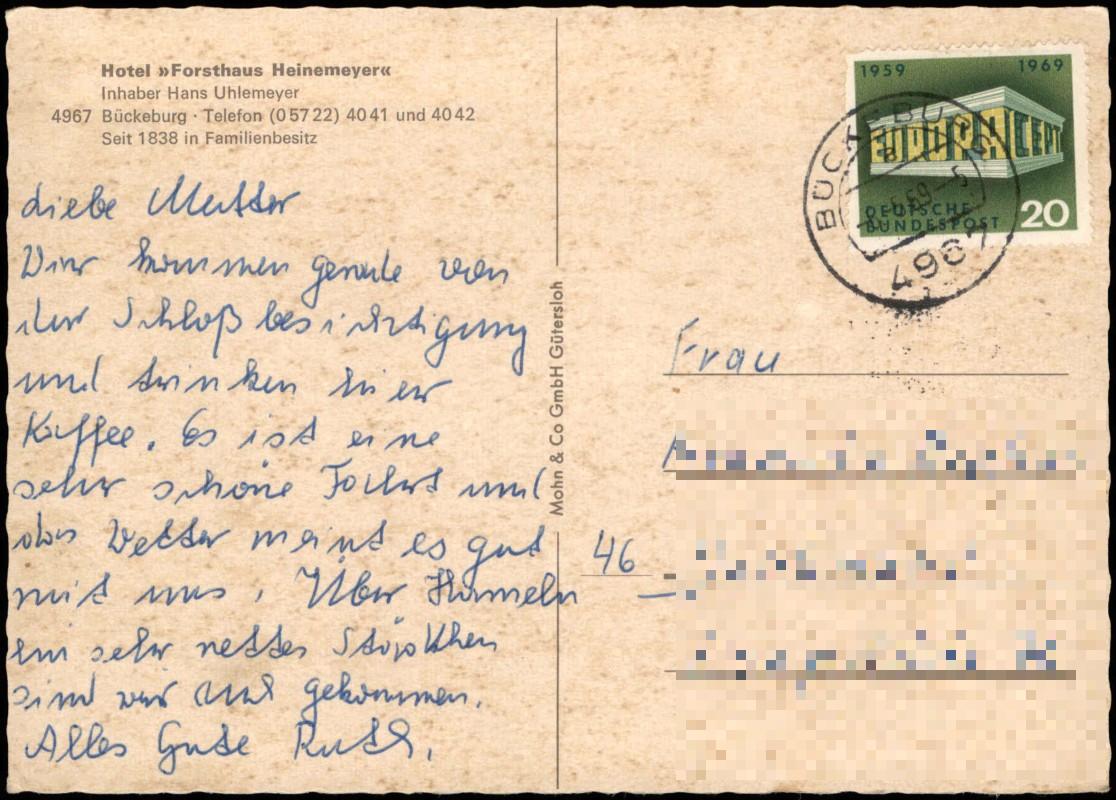 Hotel »Forsthaus Heinemeyer«
Inhaber Hans Uhlemeyer
4967 Bückeburg · Telefon (05722) 4041 und 4042
Seit 1838 in Familienbesitz
Liebe Mutter
Wir kommen gerade von
der Schloßbesichtigung
und trinken hier
Kaffee. Es ist eine
sehr schöne Fahrt und
das Wetter meint es gut
mit uns. Über Hameln
ein sehr nettes Städtchen
sind wir gekommen.
Alles Gute Ruth.
Mohn & Co GmbH Gütersloh
1959 1969
EUROPA CEPT
DEUTSCHE
BUNDESPOST 20
BÜCKEBURG
4967
Frau
46